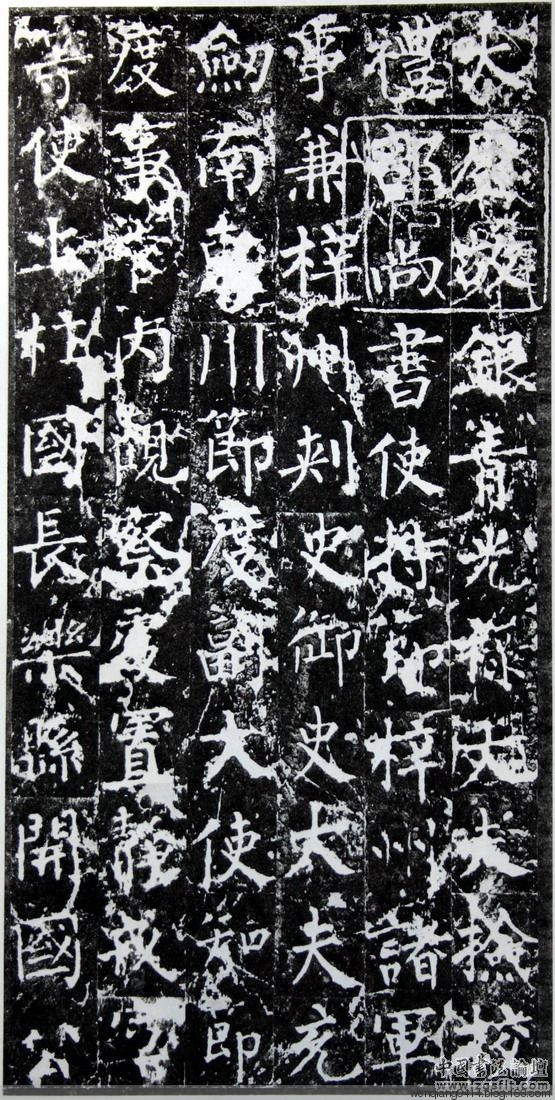 大唐故銀青光祿大夫檢校
禮部尚書使持節梓州諸軍
事兼梓州刺史御史大夫充
劍南東川節度副大使知節
度事管內觀察處置靜戎軍
等使上柱國長樂縣開國公
中国书法論壇
www.zgsflt.com